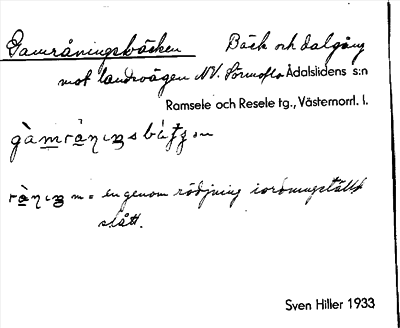 Gamråningsbäcken Bäck och dalgång
mot landsvägen NV. Förmofla Ådalslidens s:n
Ramsele och Resele tg., Västernorrl. l.
en genom rödjning iordningställd
slått.
Sven Hiller 1933